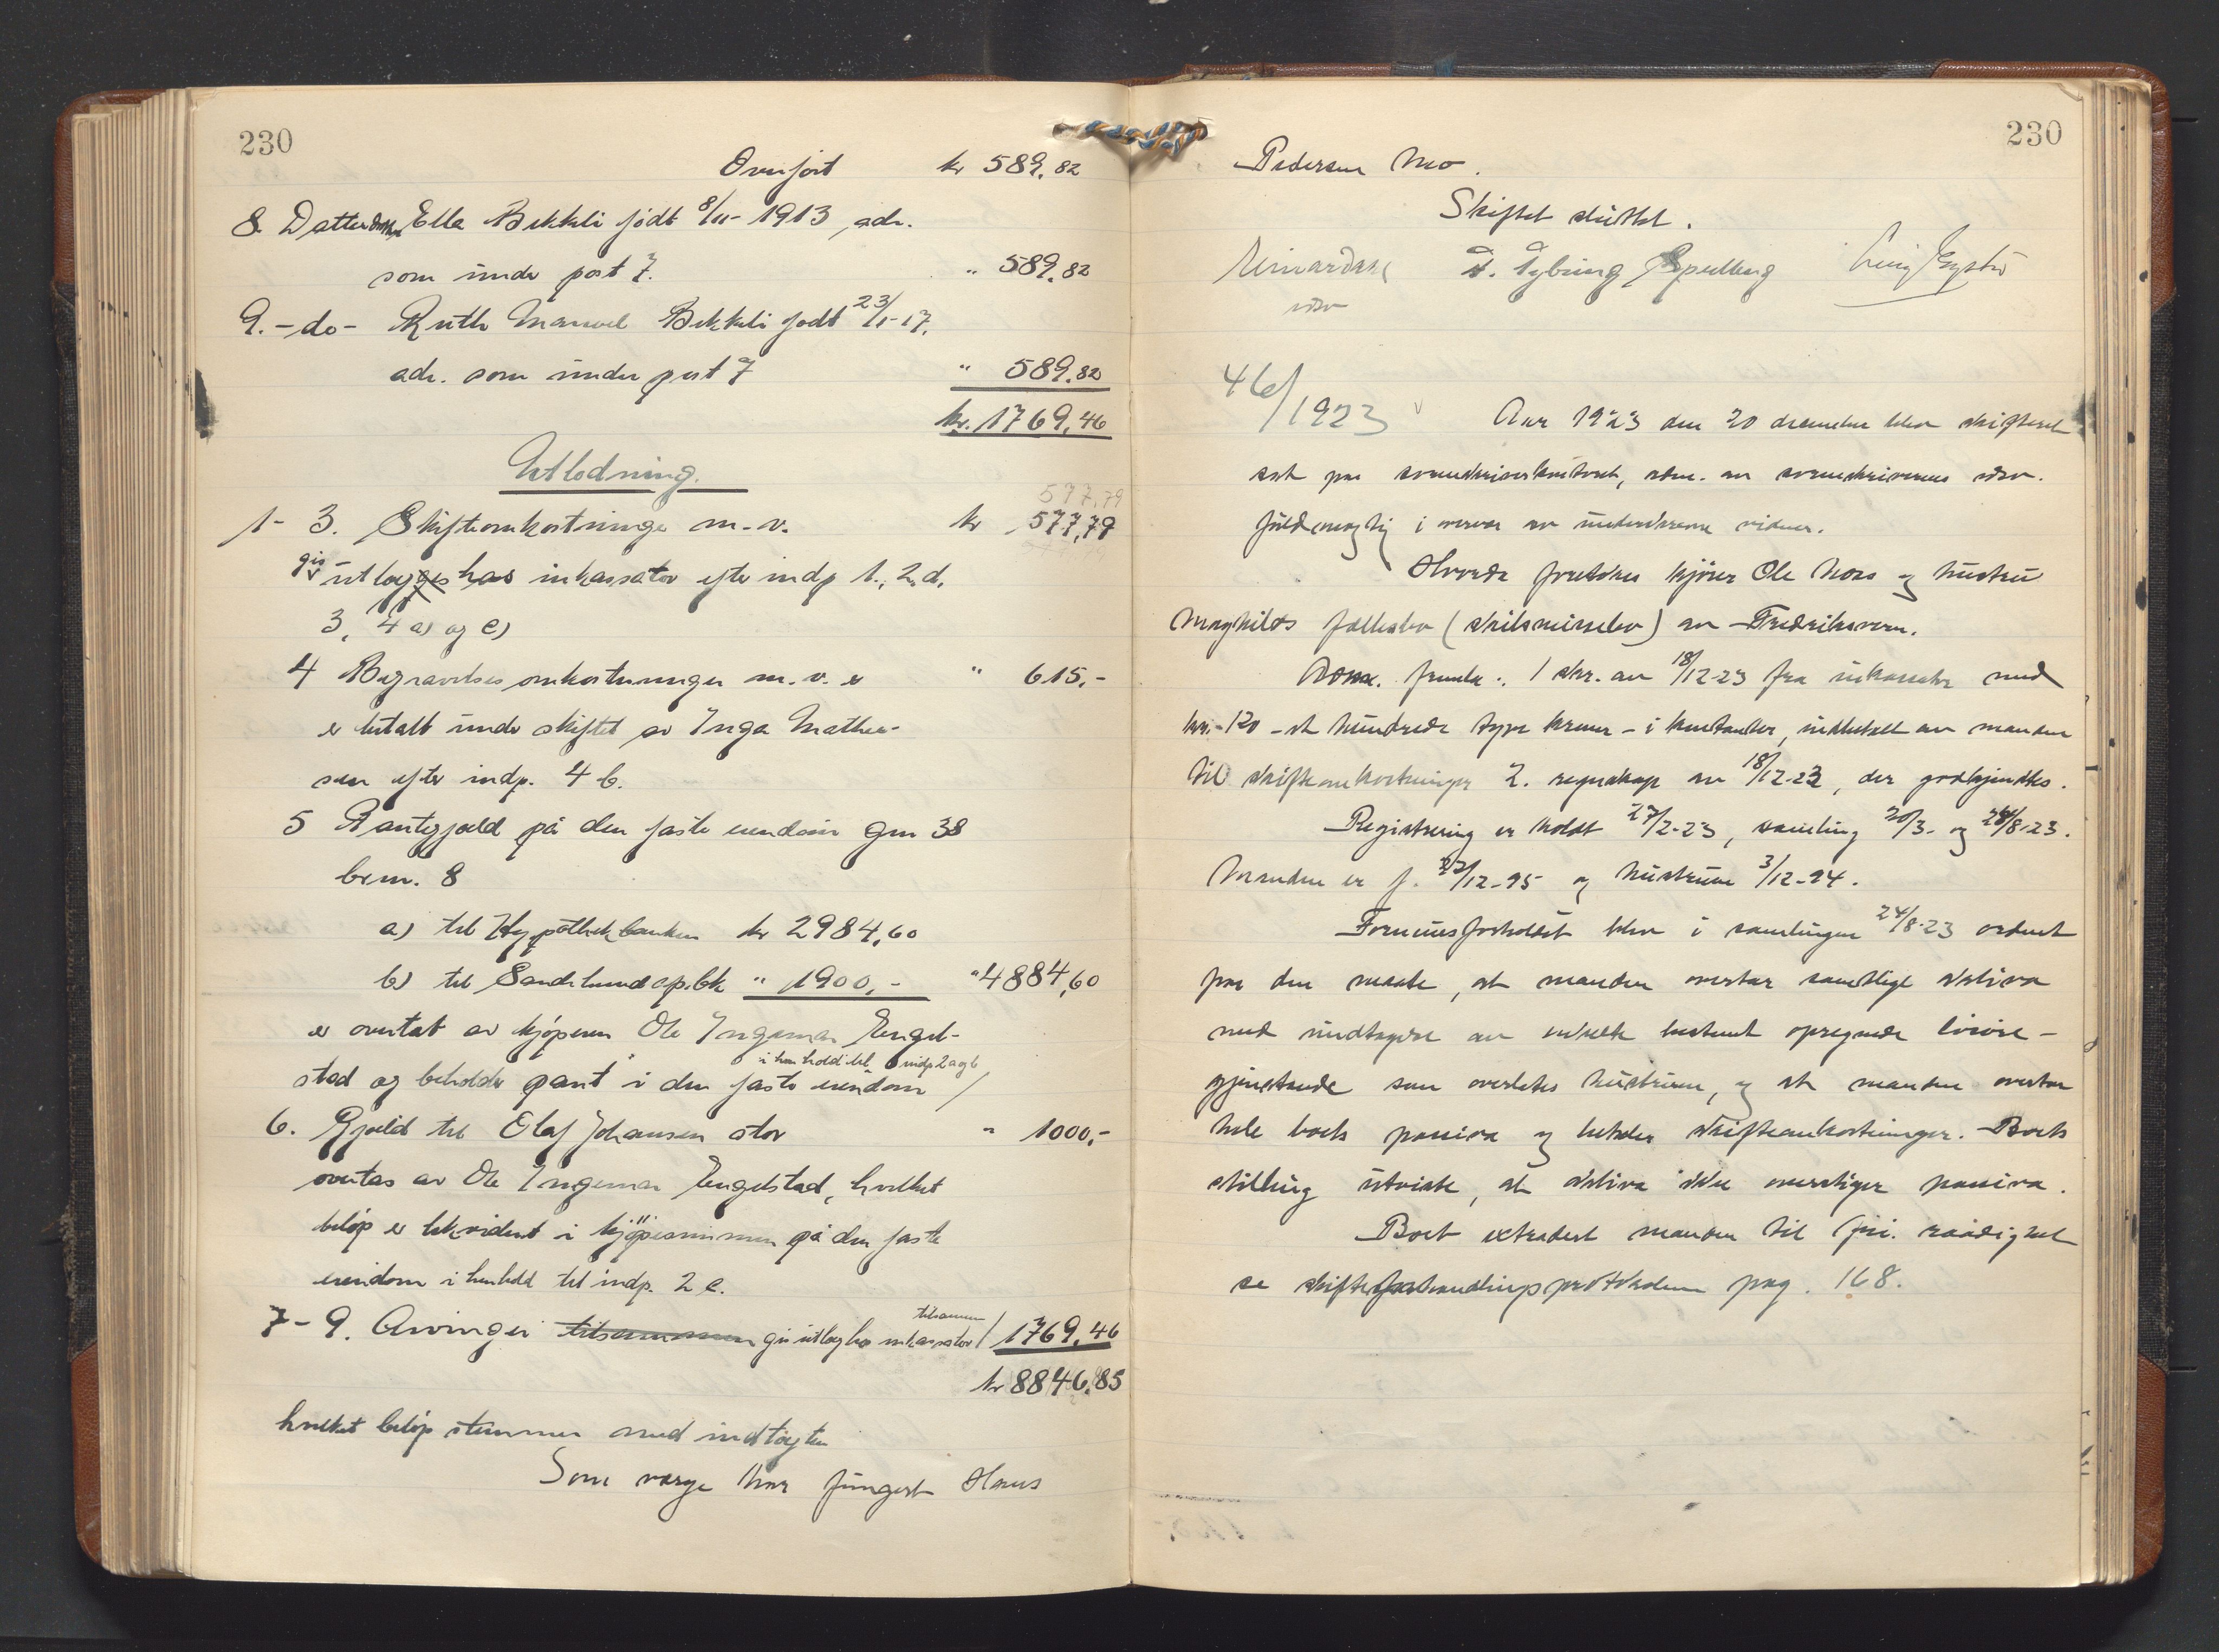 230
Overført kr 589,82
8. Datterdatter Ella Bekkeli født 8/11-1913, adr.
som under post 7. " 589,82
9. -do- Ruth Manuel Bekkeli født 23/1-17.
adr. som under post 7 " 589,82
kr. 1769,46
Utlodning.
577,79
1-3. Skifteomkostninger m.v. kr 577,79
gis utlægges hos inkassator efter indp 1., 2 d,
3, 4 a) og c)
4 Begravelsesomkostninger m.v. er " 615,-
er betalt under skiftet av Inga Mathea-
sen efter indp. 4 b.
5 Pantegjæld på den faste eiendom gnr 38
brnr. 8
a) til Hypothekbanken kr 2984,60
b) til Sandehered spbk " 1900,- " 4884,60
er overtat av kjøperen Ole Ingemar Engel-
i henhold til indp 2 a og b
stad og beholder pant i den faste eiendom /
6. Gjæld til Olaf Johansen stor " 1000,-
overtas av Ole Ingemar Engelstad, hvilket
beløp er likvidert i kjøpesummen på den faste
eiendom i henhold til indp. 2 c.
tilsammen
7-9. Arvinger tilsammen gis utlæg hos inkassator / 1769,46
kr 8846,85
hvilket beløp stemmer med indtægten
Som verge har fungert Hans
230
Pedersen Mo.
Skiftet sluttet.
46/1923 Aar 1923 den 20 december blev skifteret
sat paa sorenskriverkontoret, adm. av sorenskriverens edsv.
fuldmægtig i overvær av undertegnede vidner.
Hvorda foretokes kjører Ole Moss og hustru
Maghilds fællesbo (skilsmissebo) av Fredriksvern.
Adm. fremla: 1 skr. av 18/12-23 fra inkassator med
kr. 120 - et hundrede tyve kroner - i kontanter, indbetalt av manden
til skifteomkostninger 2. regnskap av 18/12-23, der godkjendtes.
Registrering er holdt 27/2-23, samling 20/3- og 24/8-23.
Manden er f. 22/12-95 og hustruen 3/12-94.
Formuesforholdet blev i samlingen 24/8-23 ordnet
paa den maate, at manden overtar samtlige aktiva
med undtagelse av enkelte bestemt opregnede løsøre-
gjenstande som overlates hustruen, og at manden overtar
hele boets passiva og betaler skifteomkostninger. Boets
stilling utviste, at aktiva ikke overstiger passiva.
Boet extradert manden til fri raadighet
se skifteforhandlingsprotokollen pag. 168.